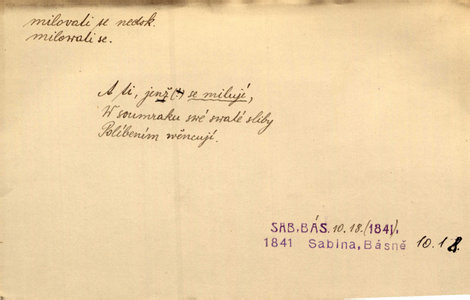 milovati se nedok.
milowati se.
A ti, jenž(:) se milujé,
W soumraku swé swaté sliby
Políbením wěncují.
SAB. BÁS. 10. 18. (1841).
1841 Sabina, Básně 10.18.